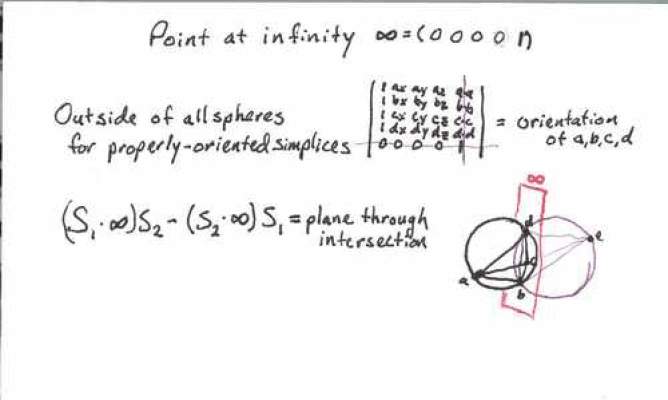 Point at infinity ∞=(0 0 0 0 1)
Outside of all spheres
for properly-oriented simplices
1 ax ay az a·a
1 bx by bz b·b
1 cx cy cz c·c
1 dx dy dz d·d
0 0 0 0 1
= orientation
of a,b,c,d
(S₁·∞)S₂ - (S₂·∞)S₁ = plane through
intersection
∞
d
e
c
a
b